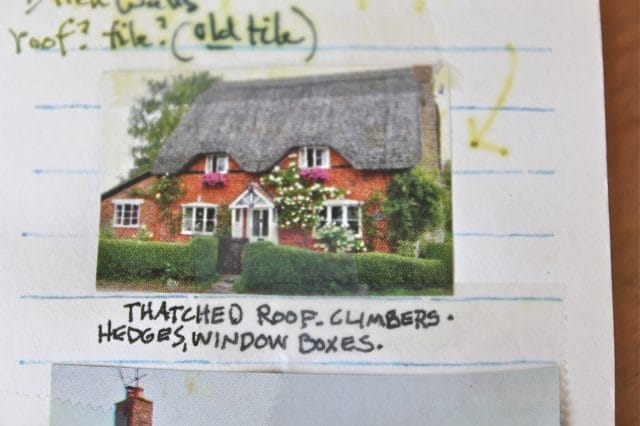 walls
roof? tile? (old tile)
THATCHED ROOF. CLIMBERS.
HEDGES, WINDOW BOXES.